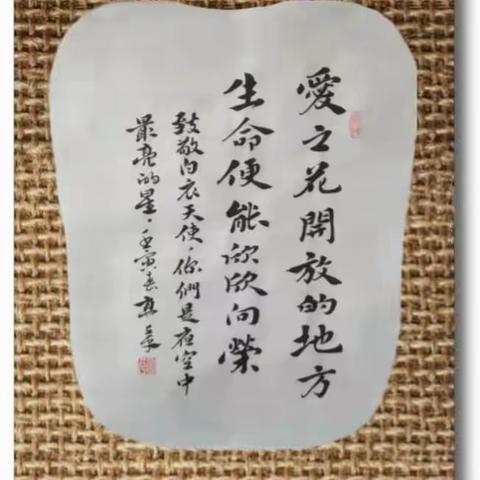 愛之花開放的地方
生命便能欣欣向榮
致敬白衣天使，你們是夜空中
最亮的星，壬寅春